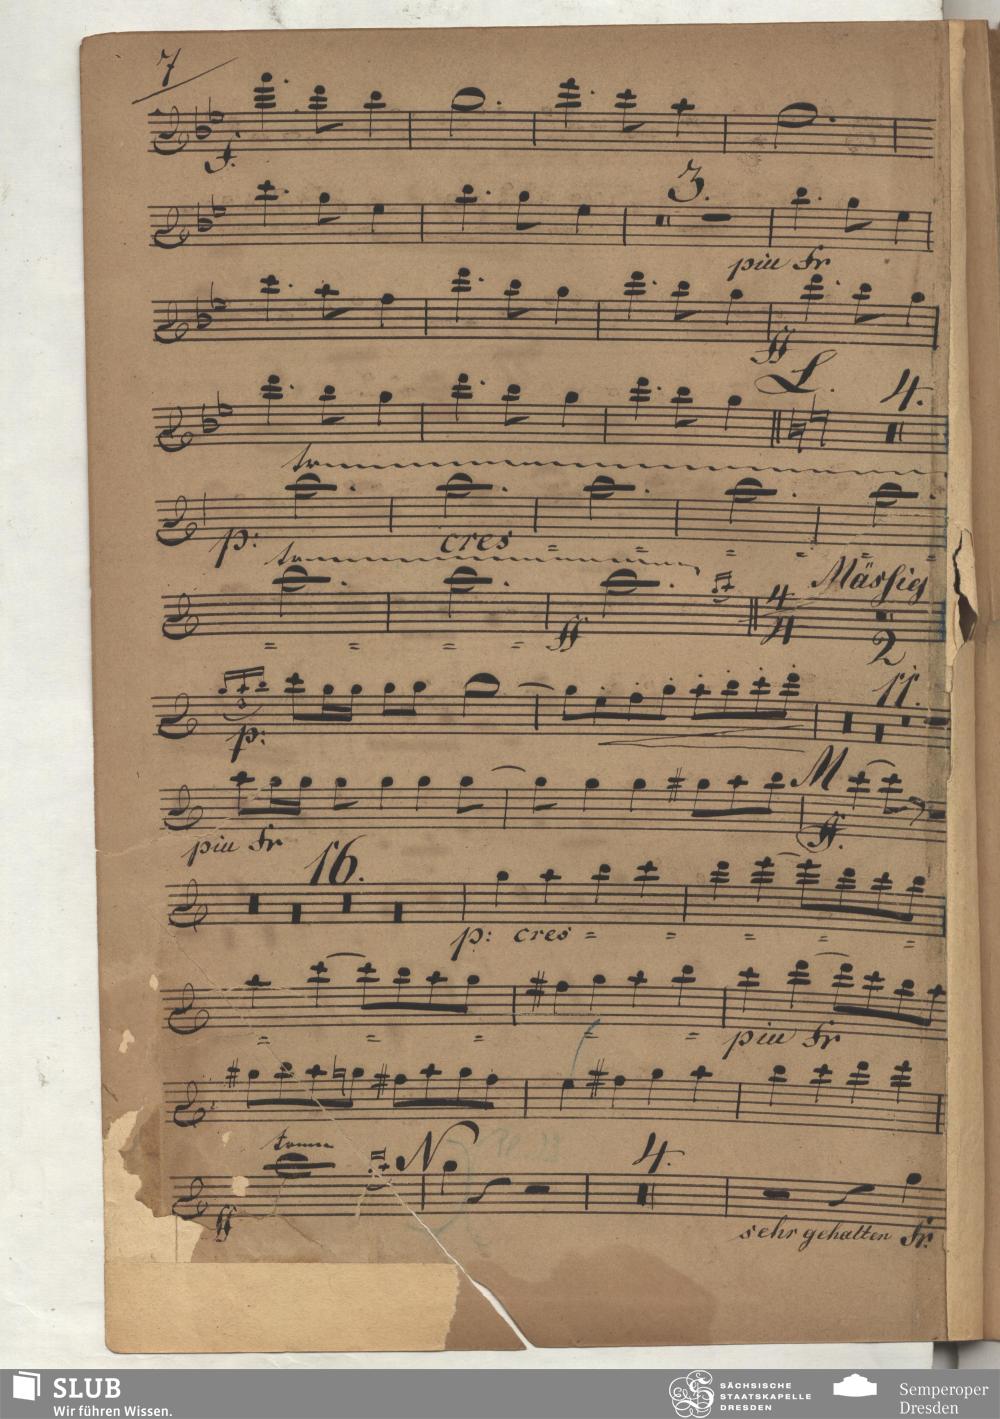 7
f.
3.
piu fr
ff
L.
4.
tr
p: cres = = = = =
tr
Mässig
= = = = ff
4
4
2
3
p:
11.
M
piu fr
ff.
16.
p: cres = = = =
= = = = =
piu fr
tr
N
4.
ff
sehr gehalten fr.
SLUB
Wir führen Wissen.
SÄCHSISCHE
STAATSKAPELLE
DRESDEN
Semperoper
Dresden